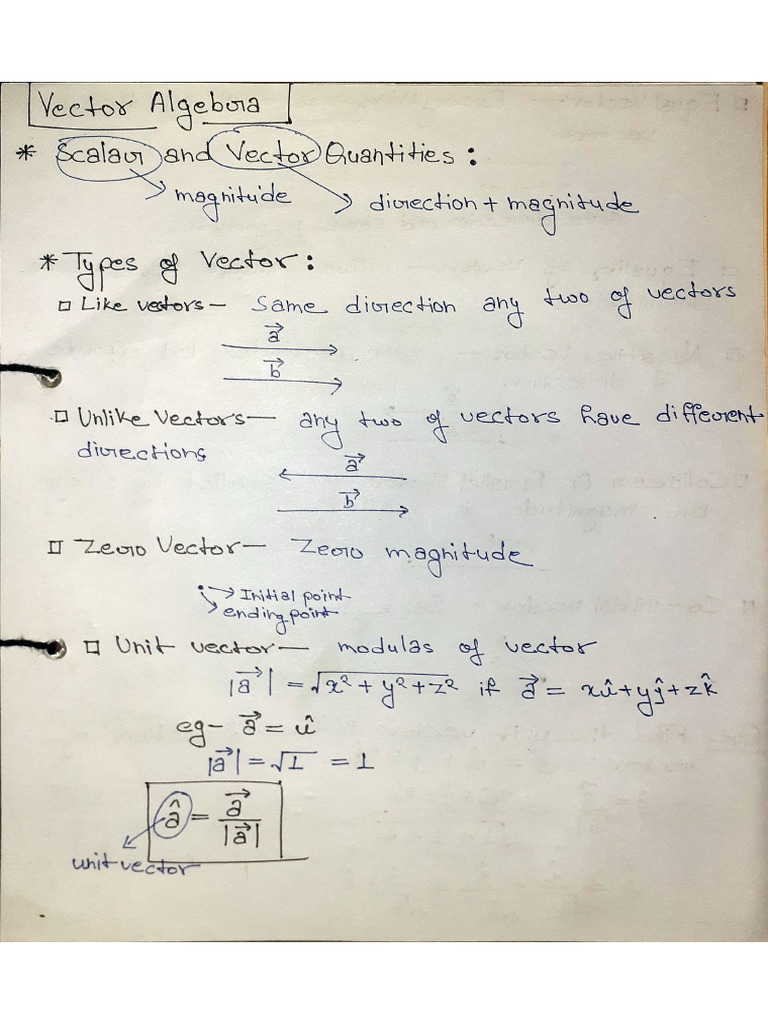 Vector Algebra
* Scalar and Vector Quantities :
magnitude direction + magnitude
* Types of Vector :
□ Like vectors — Same direction any two of vectors
a⃗
b⃗
□ Unlike Vectors — any two of vectors have different
directions
a⃗
b⃗
□ Zero Vector — Zero magnitude
→ Initial point
→ ending point
□ Unit vector — modulas of vector
|a⃗| = √x² + y² + z² if a⃗ = xî + yĵ + zk̂
eg - a⃗ = î
|a⃗| = √1 = 1
â = a⃗ / |a⃗|
unit vector